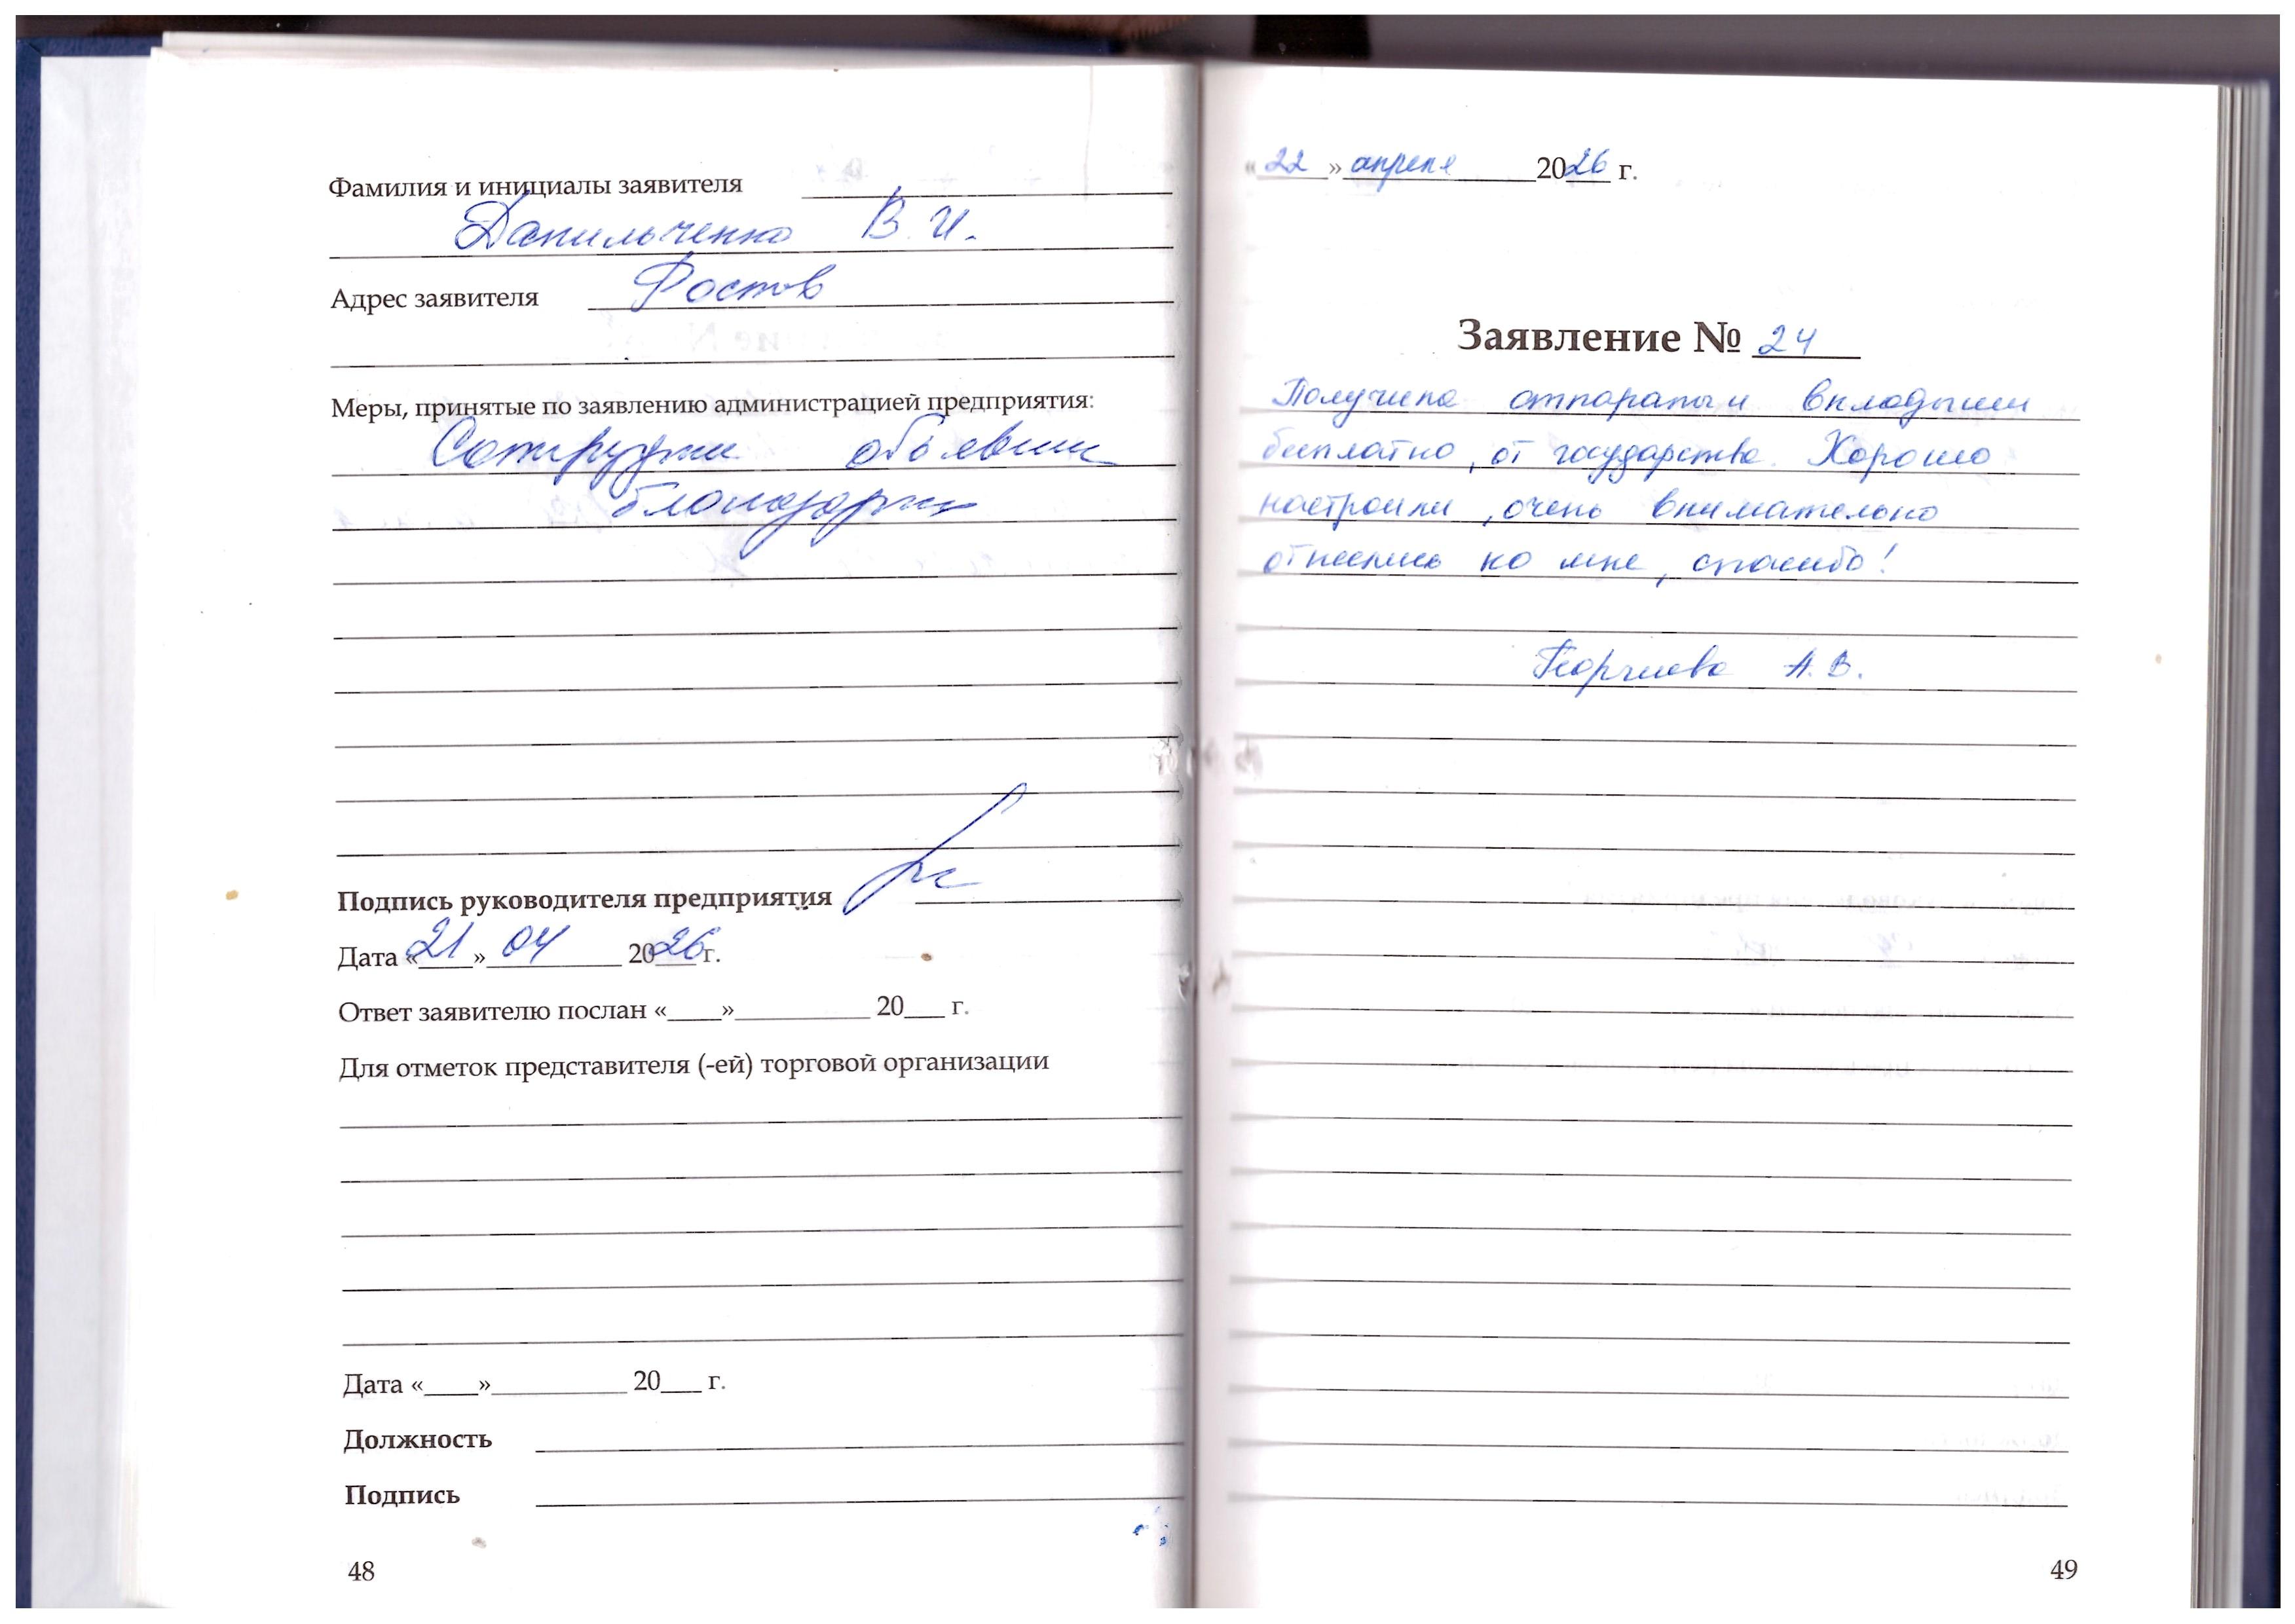 Фамилия и инициалы заявителя
Данильченко В. И.
Адрес заявителя Ростов
Меры, принятые по заявлению администрацией предприятия:
объявить
Подпись руководителя предприятия
Дата «21» 04 2026 г.
Ответ заявителю послан «____»__________ 20___ г.
Для отметок представителя (-ей) торговой организации
Дата «____»__________ 20___ г.
Должность
Подпись
48
«22» апреля 2026 г.
Заявление № 24
Получила аппараты и вкладыши
бесплатно, от государства. Хорошо
настроили, очень внимательно
отнеслись ко мне, спасибо!
Георгиева А. В.
49